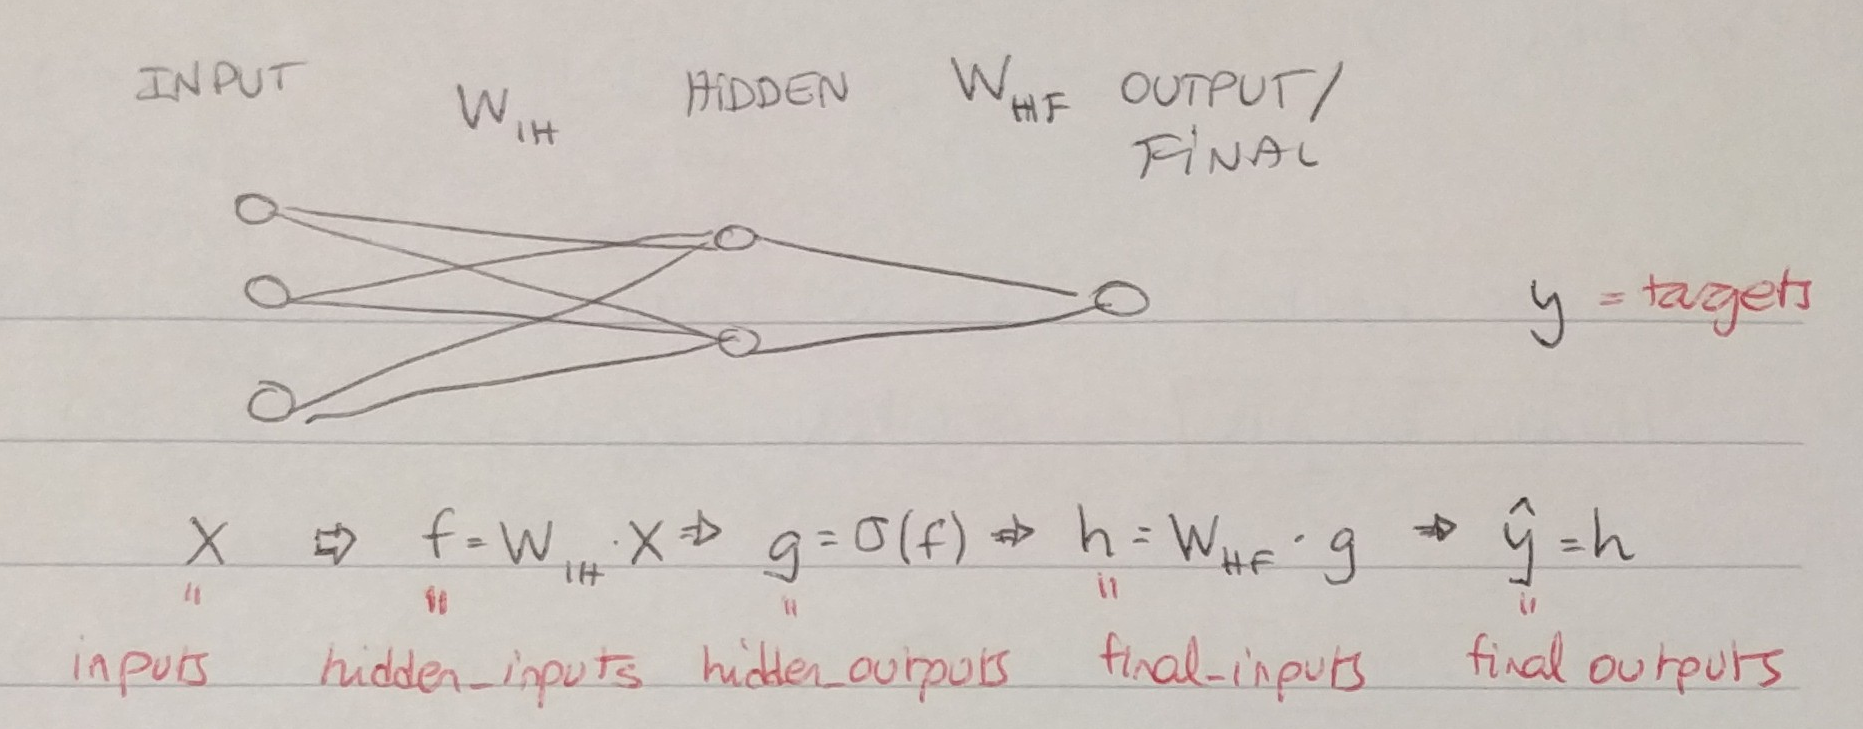 INPUT W_IH HIDDEN W_HF OUTPUT/
FINAL
y = targets
X ⇒ f = W_IH · X ⇒ g = σ(f) ⇒ h = W_HF · g ⇒ ŷ = h
" " " " "
inputs hidden_inputs hidden_outputs final_inputs final outputs